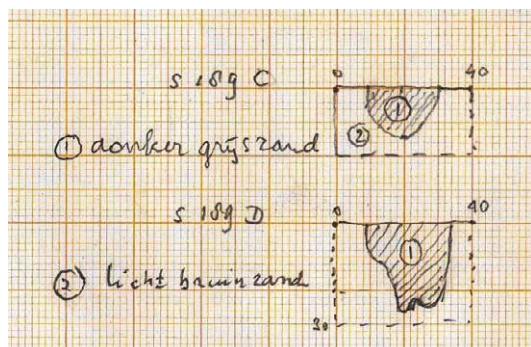 s 189 C
0 40
1
2
1 donker grijs zand
s 189 D
0 40
1
2 licht bruin zand
30